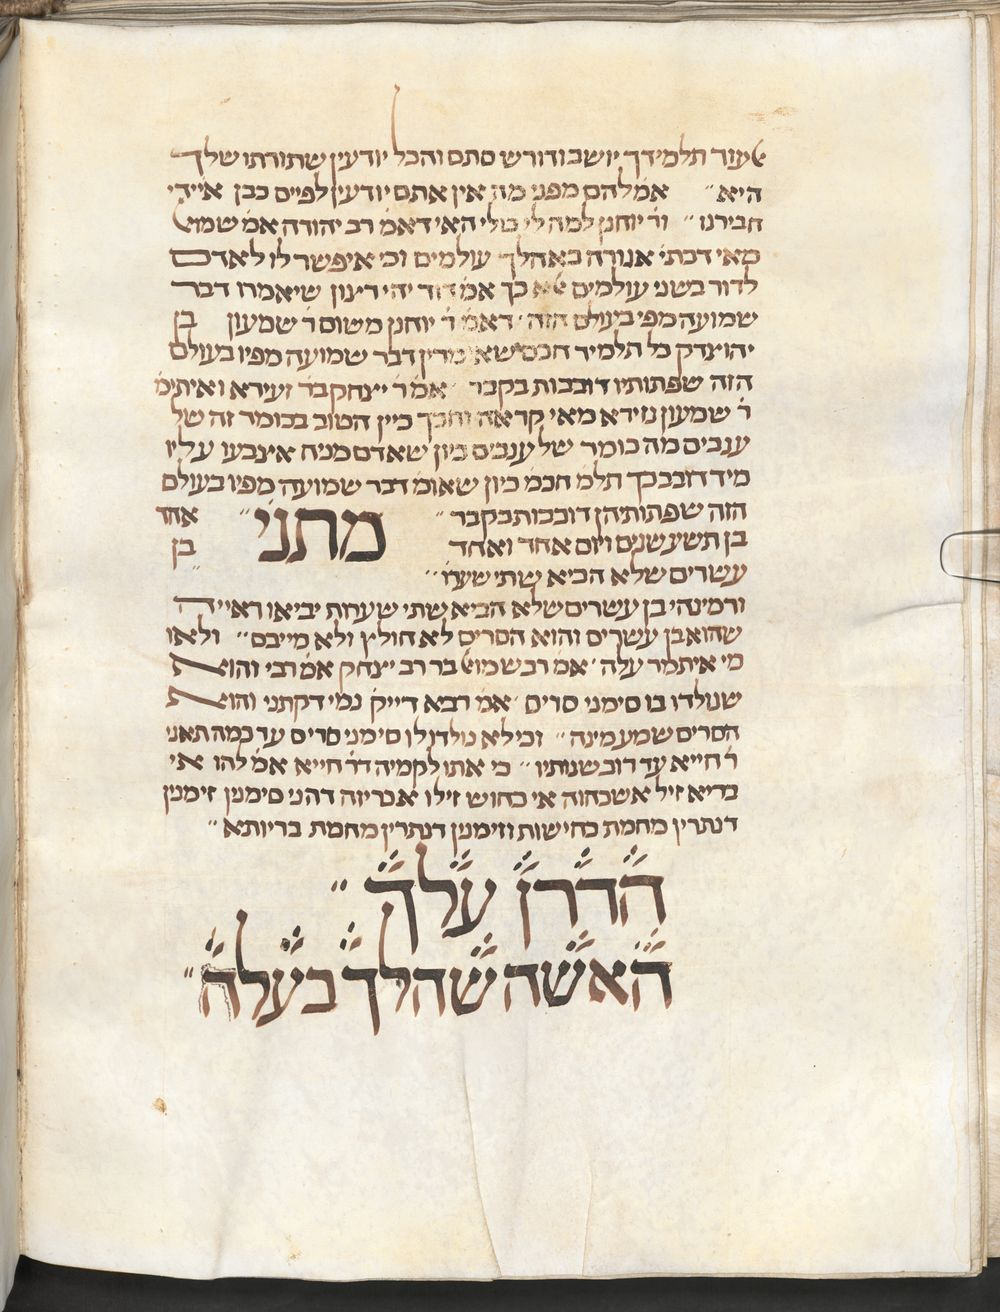 אלעזר תלמידך יושב ודורש סתם והכל יודעין שתורתו שלך
היא״ אמ׳ להם מפני מה אין אתם יודעין לפייס כבן איידי
חבירנו״ ור׳ יוחנן למה לי כולי האי דאמ׳ רב יהודה אמ׳ שמוא׳
מאי דכתי׳ אגורה באהלך עולמים וכי איפשר לו לאדם
לדור בשני עולמים אלא כך אמ׳ דוד יהי רצון שיאמרו דבר
שמועה מפי בעולם הזה׳ דאמ׳ ר׳ יוחנן משום ר׳ שמעון בן
יהוצדק כל תלמיד חכם שאומרין דבר שמועה מפיו בעולם
הזה שפתותיו דובבות בקבר׳ אמ׳ ר׳ יצחק בר׳ זעירא ואיתימ׳
ר׳ שמעון נזירא מאי קראה וחכך כיין הטוב בכומר זה של
ענבים מה כומר של ענבים כיון שאדם מניח אצבעו עליו
מיד דובב כך תלמ׳ חכמ׳ כיון שאומ׳ דבר שמועה מפיו בעולם
הזה שפתותיהן דובבות בקבר״ מתני׳״ אחד
בן תשע שנים ויום אחד ואחד בן
עשרים שלא הביא שתי שערו׳״
ורמינהי בן עשרים שלא הביא שתי שערות יביאו ראייה
שהוא בן עשרים והוא הסריס לא חולץ ולא מייבם״ ולאו
מי איתמר עלה׳ אמ׳ רב שמואל בר רב יצחק אמ׳ רבי והוא
שנולדו בו סימני סריס׳ אמ׳ רבא דייק׳ נמי דקתני והוא
הסריס שמע מינה״ וכי לא נולדו לו סימני סריס עד כמה תאני
ר׳ חייא עד רוב שנותיו״ כי אתו לקמיה דר׳ חייא אמ׳ להו אי
בריא זיל אשכחוה אי כחוש זילו אבריוה דהני סימנין זימנין
דנתרין מחמת כחישות וזימנין דנתרין מחמת בריותא״
הדרן עלך״
האשה שהלך בעלה״